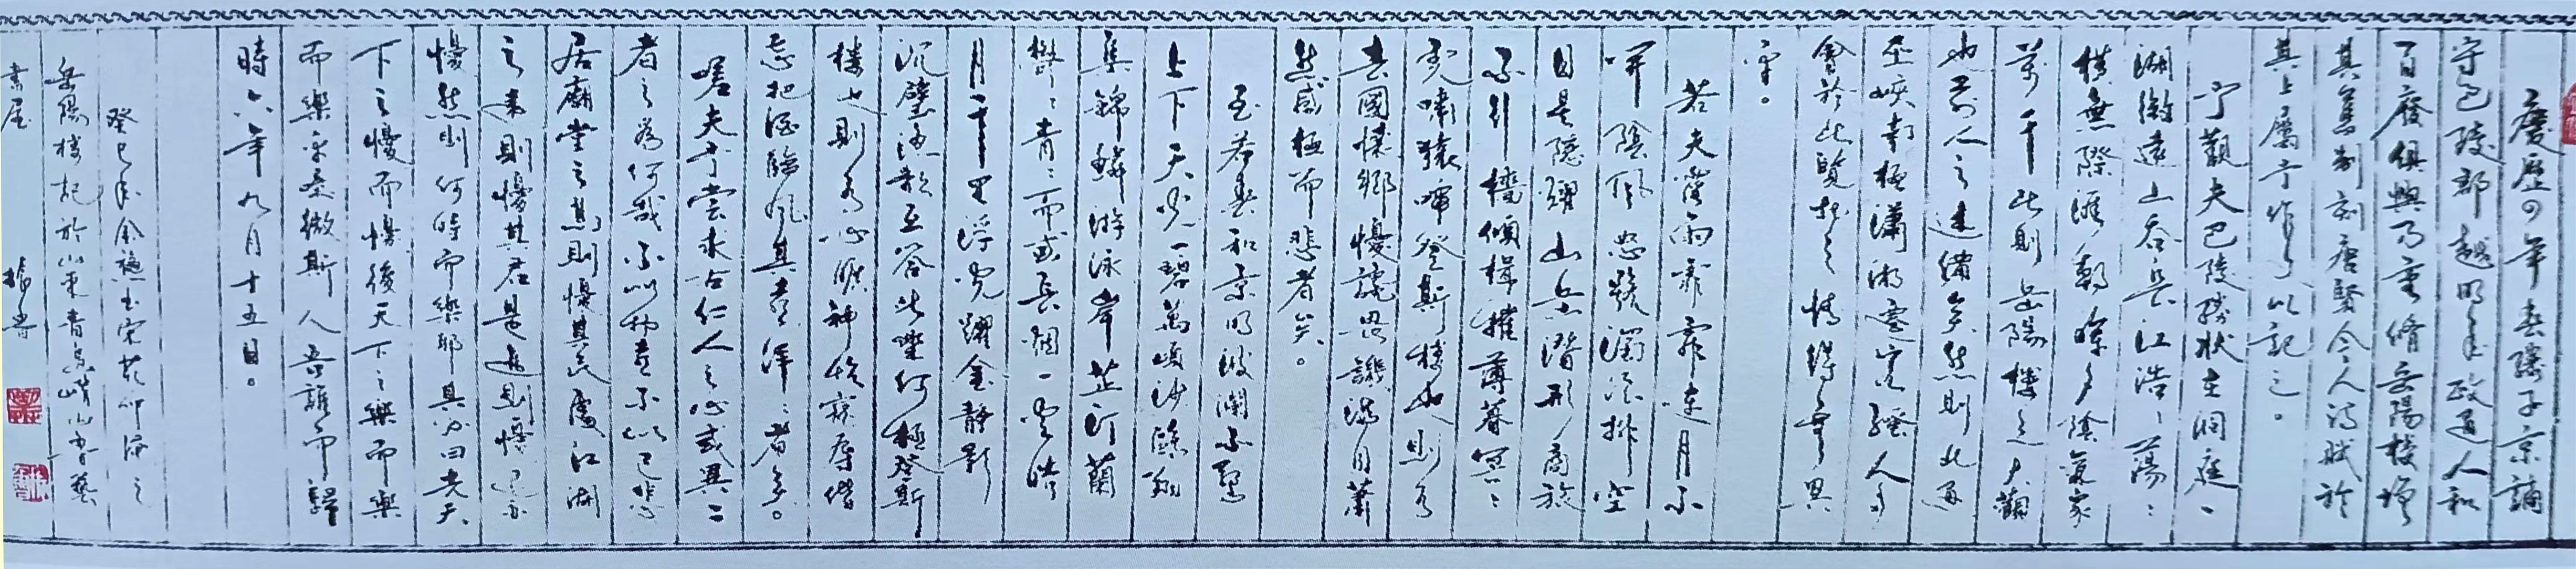 慶歷四年春滕子京謫
守巴陵郡越明年政通人和
百廢俱興乃重脩岳陽樓增
其舊制刻唐賢今人詩賦於
其上屬予作文以記之。
予觀夫巴陵勝狀在洞庭一
湖銜遠山吞長江浩〻蕩〻
橫無際涯朝暉夕陰氣象
萬千此則岳陽樓之大觀
也前人之述備矣然則北通
巫峽南極瀟湘遷客騷人多
會於此覽物之情得無異
乎。
若夫霪雨霏霏連月不
開陰風怒號濁浪排空
日星隱耀山岳潛形商旅
不行檣傾楫摧薄暮冥〻
虎嘯猿啼登斯樓也則有
去國懷鄉憂讒畏譏滿目蕭
然感極而悲者矣。
至若春和景明波瀾不驚
上下天光一碧萬頃沙鷗翔
集錦鱗游泳岸芷汀蘭
郁〻青〻而或長烟一空皓
月千里浮光躍金靜影
沉璧漁歌互答此樂何極登斯
樓也則有心曠神怡寵辱偕
忘把酒臨風其喜洋〻者矣。
嗟夫予嘗求古仁人之心或異二
者之為何哉不以物喜不以己悲
居廟堂之高則憂其民處江湖
之遠則憂其君是進則憂退亦
憂然則何時而樂耶其必曰先天
下之憂而憂後天下之樂而樂
而樂乎噫微斯人吾誰與歸
時六年九月十五日。
癸巳年 書宋范仲淹之
岳陽樓記於山東青島嶗山書藝
書屋 振書